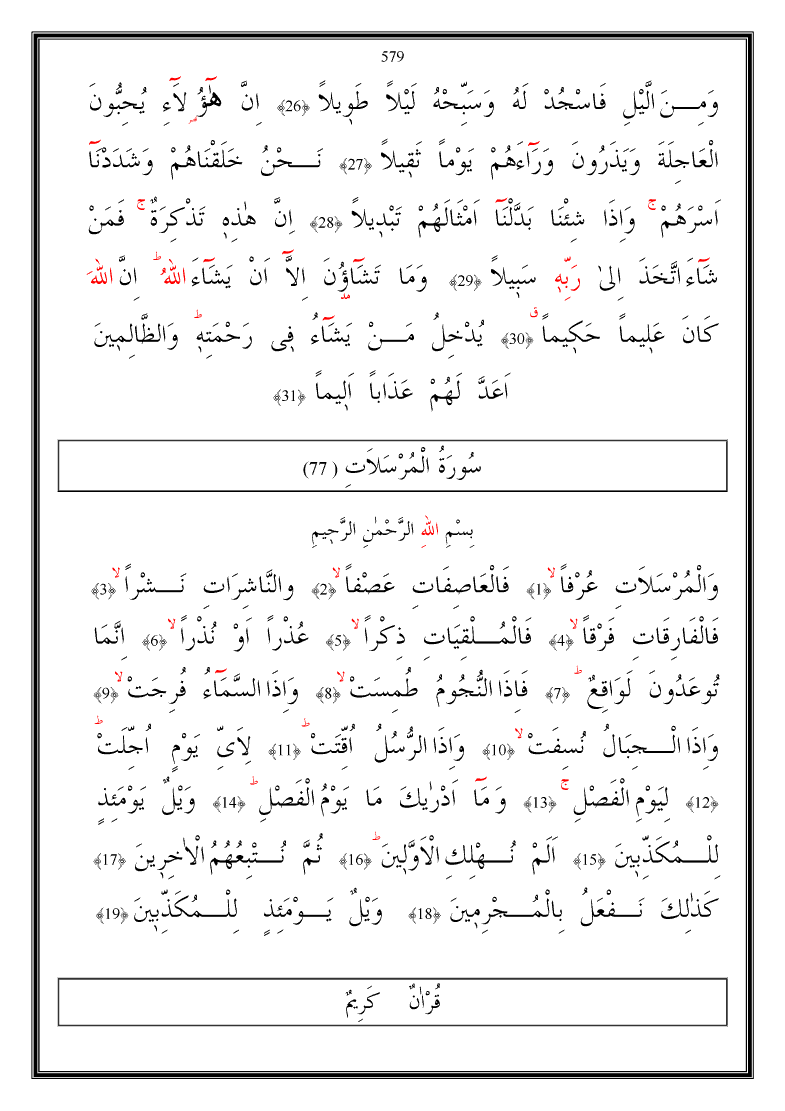 579
وَمِنَ الَّيْلِ فَاسْجُدْ لَهُ وَسَبِّحْهُ لَيْلاً طَوٖيلاً ﴿26﴾ اِنَّ هٰٓؤُ۬لَٓاءِ يُحِبُّونَ
الْعَاجِلَةَ وَيَذَرُونَ وَرَٓاءَهُمْ يَوْماً ثَقٖيلاً ﴿27﴾ نَحْنُ خَلَقْنَاهُمْ وَشَدَدْنَٓا
اَسْرَهُمْ ۚ وَاِذَا شِئْنَا بَدَّلْنَٓا اَمْثَالَهُمْ تَبْدٖيلاً ﴿28﴾ اِنَّ هٰذِهٖ تَذْكِرَةٌ ۚ فَمَنْ
شَٓاءَ اتَّخَذَ اِلىٰ رَبِّهٖ سَبٖيلاً ﴿29﴾ وَمَا تَشَٓاؤُ۫نَ اِلَّٓا اَنْ يَشَٓاءَ اللّٰهُ ؕ اِنَّ اللّٰهَ
كَانَ عَلٖيماً حَكٖيماً ق ﴿30﴾ يُدْخِلُ مَنْ يَشَٓاءُ فٖى رَحْمَتِهٖ ؕ وَالظَّالِمٖينَ
اَعَدَّ لَهُمْ عَذَاباً اَلٖيماً ﴿31﴾
سُورَةُ الْمُرْسَلاَتِ ( 77)
بِسْمِ اللّٰهِ الرَّحْمٰنِ الرَّحٖيمِ
وَالْمُرْسَلاَتِ عُرْفاً ۙ ﴿1﴾ فَالْعَاصِفَاتِ عَصْفاً ۙ ﴿2﴾ والنَّاشِرَاتِ نَشْراً ۙ ﴿3﴾
فَالْفَارِقَاتِ فَرْقاً ۙ ﴿4﴾ فَالْمُلْقِيَاتِ ذِكْراً ۙ ﴿5﴾ عُذْراً اَوْ نُذْراً ۙ ﴿6﴾ اِنَّمَا
تُوعَدُونَ لَوَاقِعٌ ؕ ﴿7﴾ فَاِذَا النُّجُومُ طُمِسَتْ ۙ ﴿8﴾ وَاِذَا السَّمَٓاءُ فُرِجَتْ ۙ ﴿9﴾
وَاِذَا الْجِبَالُ نُسِفَتْ ۙ ﴿10﴾ وَاِذَا الرُّسُلُ اُقِّتَتْ ؕ ﴿11﴾ لِاَىِّ يَوْمٍ اُجِّلَتْ ؕ
﴿12﴾ لِيَوْمِ الْفَصْلِ ۚ ﴿13﴾ وَ مَٓا اَدْرٰيكَ مَا يَوْمُ الْفَصْلِ ؕ ﴿14﴾ وَيْلٌ يَوْمَئِذٍ
لِلْمُكَذِّبٖينَ ﴿15﴾ اَلَمْ نُهْلِكِ الْاَوَّلٖينَ ؕ ﴿16﴾ ثُمَّ نُتْبِعُهُمُ الْاٰخِرٖينَ ﴿17﴾
كَذٰلِكَ نَفْعَلُ بِالْمُجْرِمٖينَ ﴿18﴾ وَيْلٌ يَوْمَئِذٍ لِلْمُكَذِّبٖينَ ﴿19﴾
قُرْاٰنٌ كَرٖيمٌ